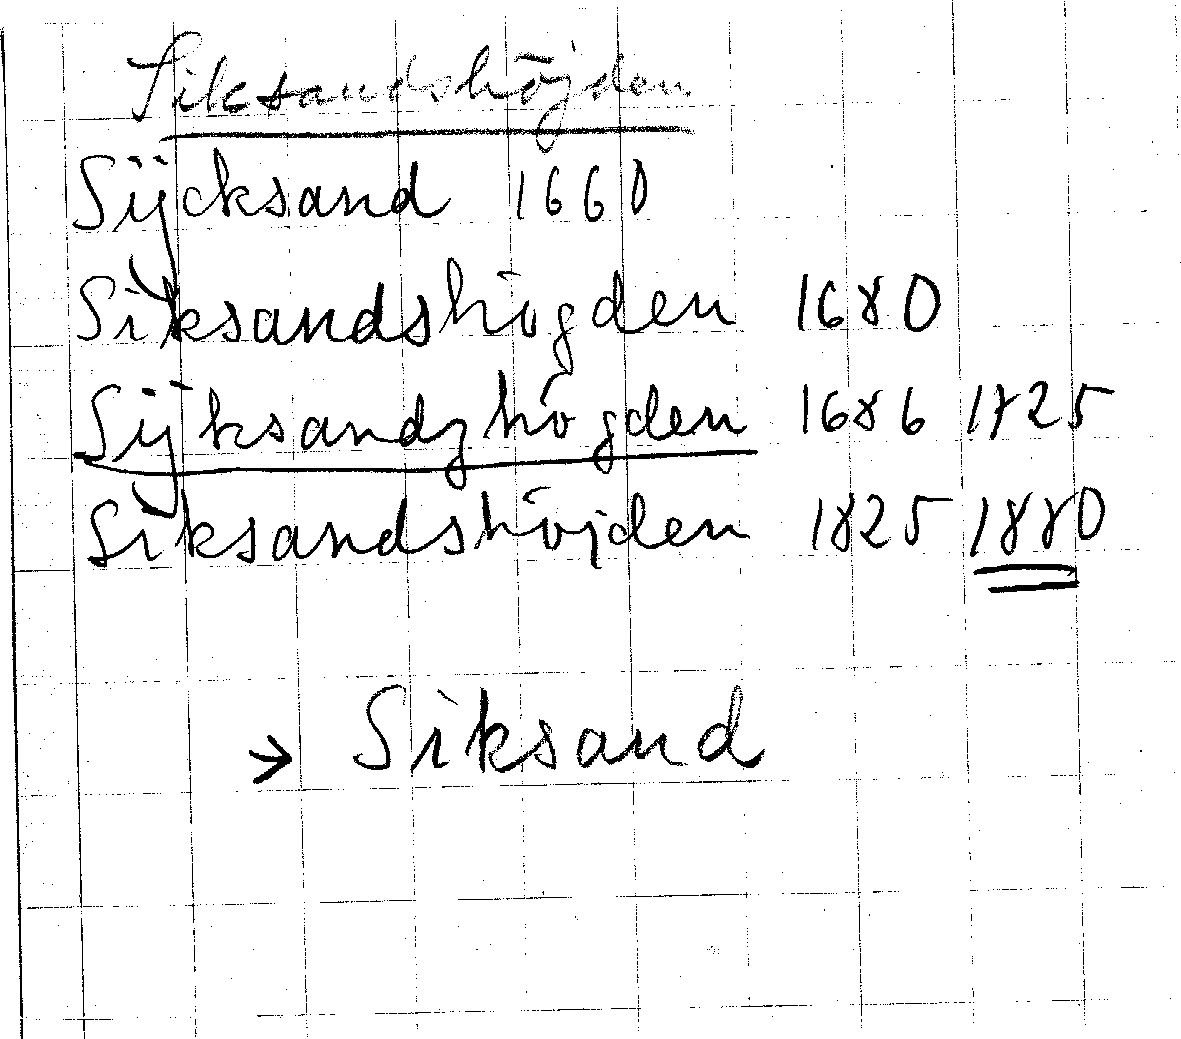 Siksandshöjden
Sÿcksand 1660
Siksandshögden 1680
Sÿksandzhögden 1686 1825
Siksandshöjden 1825 1880
→ Siksand